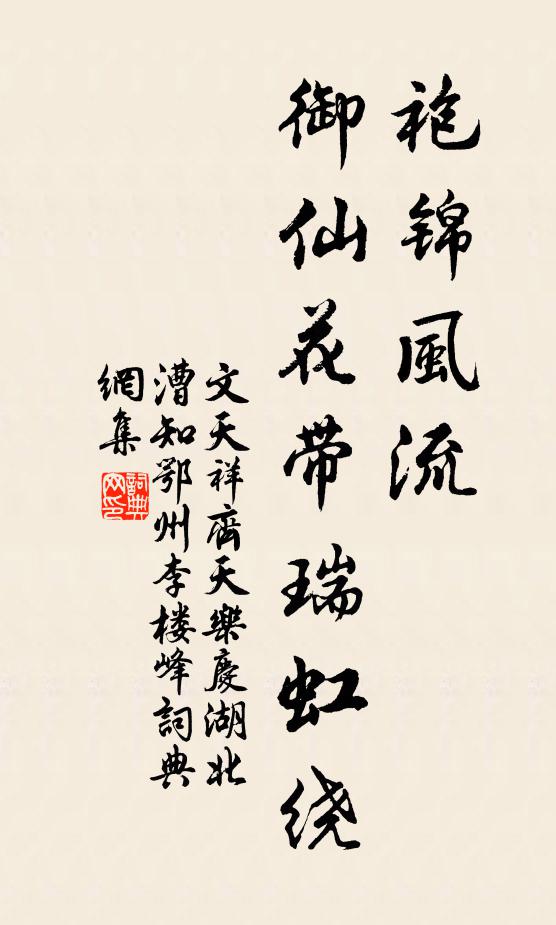 袍锦風流
御仙花带瑞虹绕
文天祥齊天樂慶湖北
漕知鄂州李楼峰詞典
網集
詞典
网印